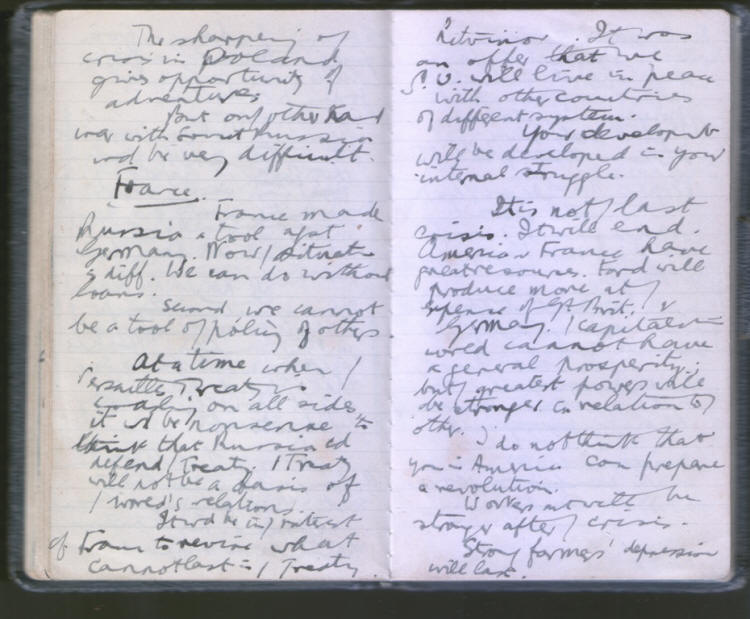 The sharpening of
crisis in Poland
gives opportunity of
adventures.
But on / other hand
war with Soviet Russia
wd be very difficult.
France.
France made
Russia a tool agst
Germany. Now / situatn
is diff. We can do without
loans.
Second we cannot
be a tool of / policy of others.
At a time when /
Versailles Treaty is
on all sides,
it wd be nonsense to
think that Russia cd
defend / Treaty. / Treaty
will not be a basis of
/ world's relations.
It wd be in / interest
of France to revise what
cannot last in / Treaty.
Litvinov. It was
an offer that we
S.U. will live in peace
with other countries
of different system.
Your developmt
will be developed in your
internal struggle.
It is not / last
crisis. It will end.
America & France have
great resources. Ford will
produce more at /
expense of Gt Brit. / &
Germany. / capitalist
world cannot have
a general prosperity;
but / greatest powers will
be stronger in relation to /
other.
I do not think that
you in America can prepare
a revolution.
Workers mt will be
stronger after / crisis.
Strong farmers' depression
will last.